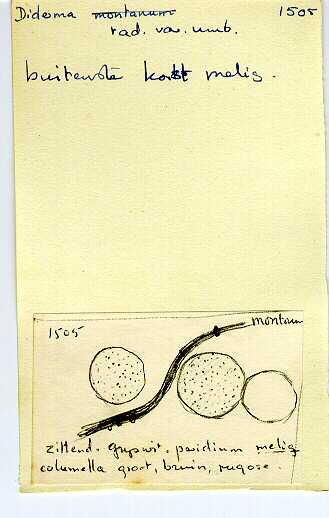 Diderma montanum 1505
rad. var. umb.
buitenste korst melig.
1505 montanum
zittend. grijswit. peridium melig
columella groot, bruin, rugose.